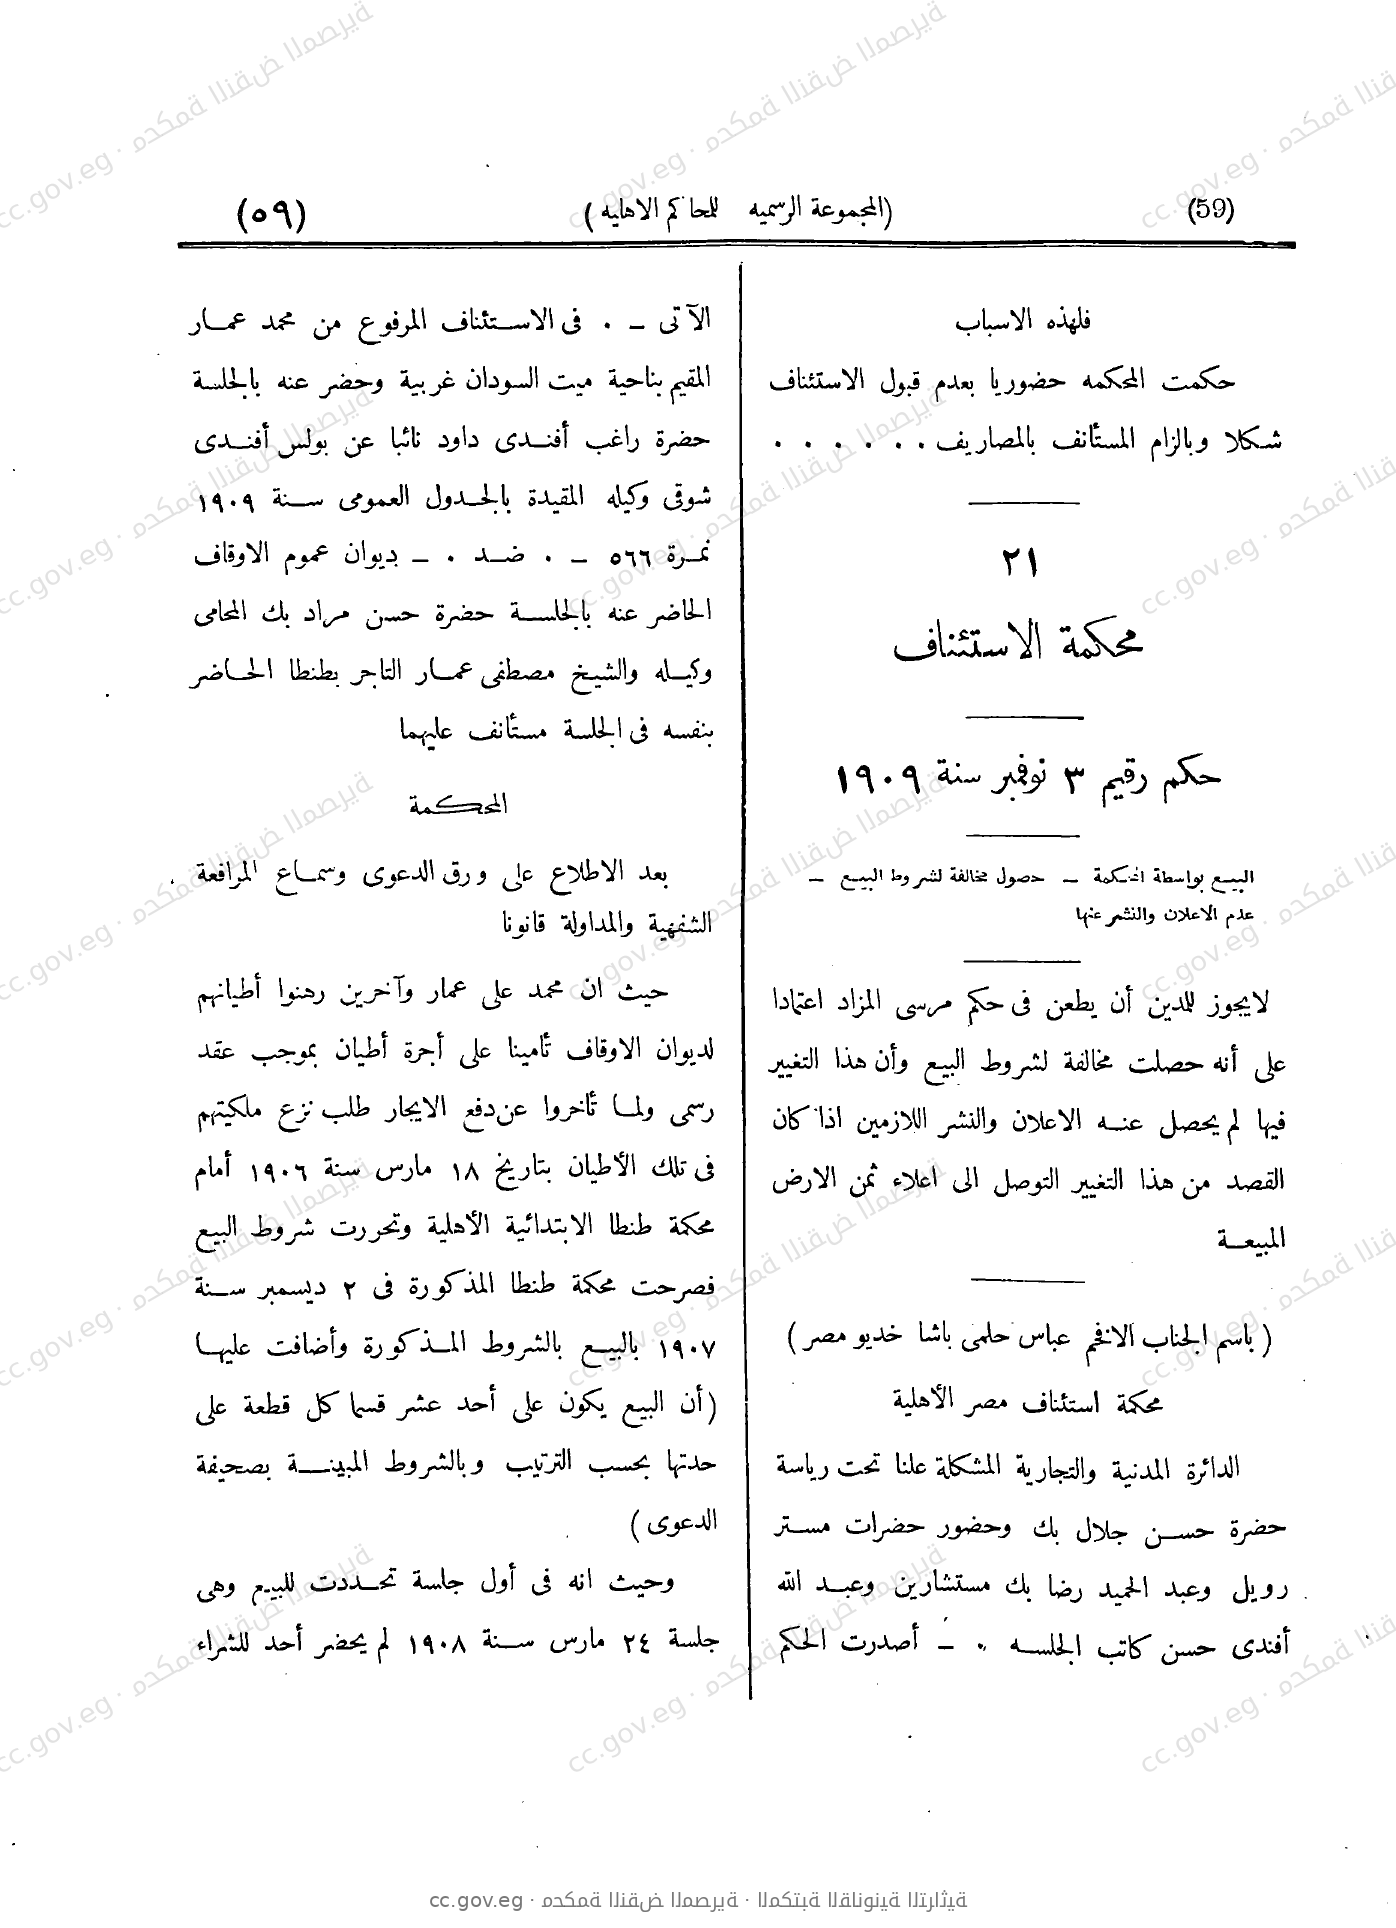 (59) (المجموعة الرسميه للمحاكم الاهليه) (٥٩)
فلهذه الاسباب
حكمت المحكمه حضوريا بعدم قبول الاستئناف
شكلا وبالزام المستأنف بالمصاريف . . . . . .
٢١
محكمة الاستئناف
حكم رقيم ٣ نوفمبر سنة ١٩٠٩
البيع بواسطة المحكمة – حصول مخالفة لشروط البيع –
عدم الاعلان والنشر عنها
لايجوز للمدين أن يطعن فى حكم مرسى المزاد اعتمادا
على أنه حصلت مخالفة لشروط البيع وأن هذا التغيير
فيها لم يحصل عنه الاعلان والنشر اللازمين اذا كان
القصد من هذا التغيير التوصل الى اعلاء ثمن الارض
المبيعة
( باسم الجناب الافخم عباس حلمى باشا خديو مصر )
محكمة استئناف مصر الأهلية
الدائرة المدنية والتجارية المشكلة علنا تحت رياسة
حضرة حسن جلال بك وحضور حضرات مستر
رويل وعبد الحميد رضا بك مستشارين وعبد الله
أفندى حسن كاتب الجلسه . – أصدرت الحكم
الآتى – . فى الاستئناف المرفوع من محمد عمار
المقيم بناحية ميت السودان غربية وحضر عنه بالجلسة
حضرة راغب أفندى داود نائبا عن بولس أفندى
شوقى وكيله المقيدة بالجدول العمومى سنة ١٩٠٩
نمرة ٥٦٦ – . ضد . – ديوان عموم الاوقاف
الحاضر عنه بالجلسة حضرة حسن مراد بك المحامى
وكيله والشيخ مصطفى عمار التاجر بطنطا الحاضر
بنفسه فى الجلسة مستأنف عليهما
المحكمة
بعد الاطلاع على ورق الدعوى وسماع المرافعة
الشفهية والمداولة قانونا
حيث ان محمد على عمار وآخرين رهنوا أطيانهم
لديوان الاوقاف تأمينا على أجرة أطيان بموجب عقد
رسمى ولما تأخروا عن دفع الايجار طلب نزع ملكيتهم
فى تلك الأطيان بتاريخ ١٨ مارس سنة ١٩٠٦ أمام
محكمة طنطا الابتدائية الأهلية وتحررت شروط البيع
فصرحت محكمة طنطا المذكورة فى ٢ ديسمبر سنة
١٩٠٧ بالبيع بالشروط المذكورة وأضافت عليها
(أن البيع يكون على أحد عشر قسما كل قطعة على
حدتها بحسب الترتيب وبالشروط المبينة بصحيفة
الدعوى)
وحيث انه فى أول جلسة تحددت للبيع وهى
جلسة ٢٤ مارس سنة ١٩٠٨ لم يحضر أحد للشراء
cc.gov.eg · محكمة النقض المصرية · المكتبة القانونية التراثية